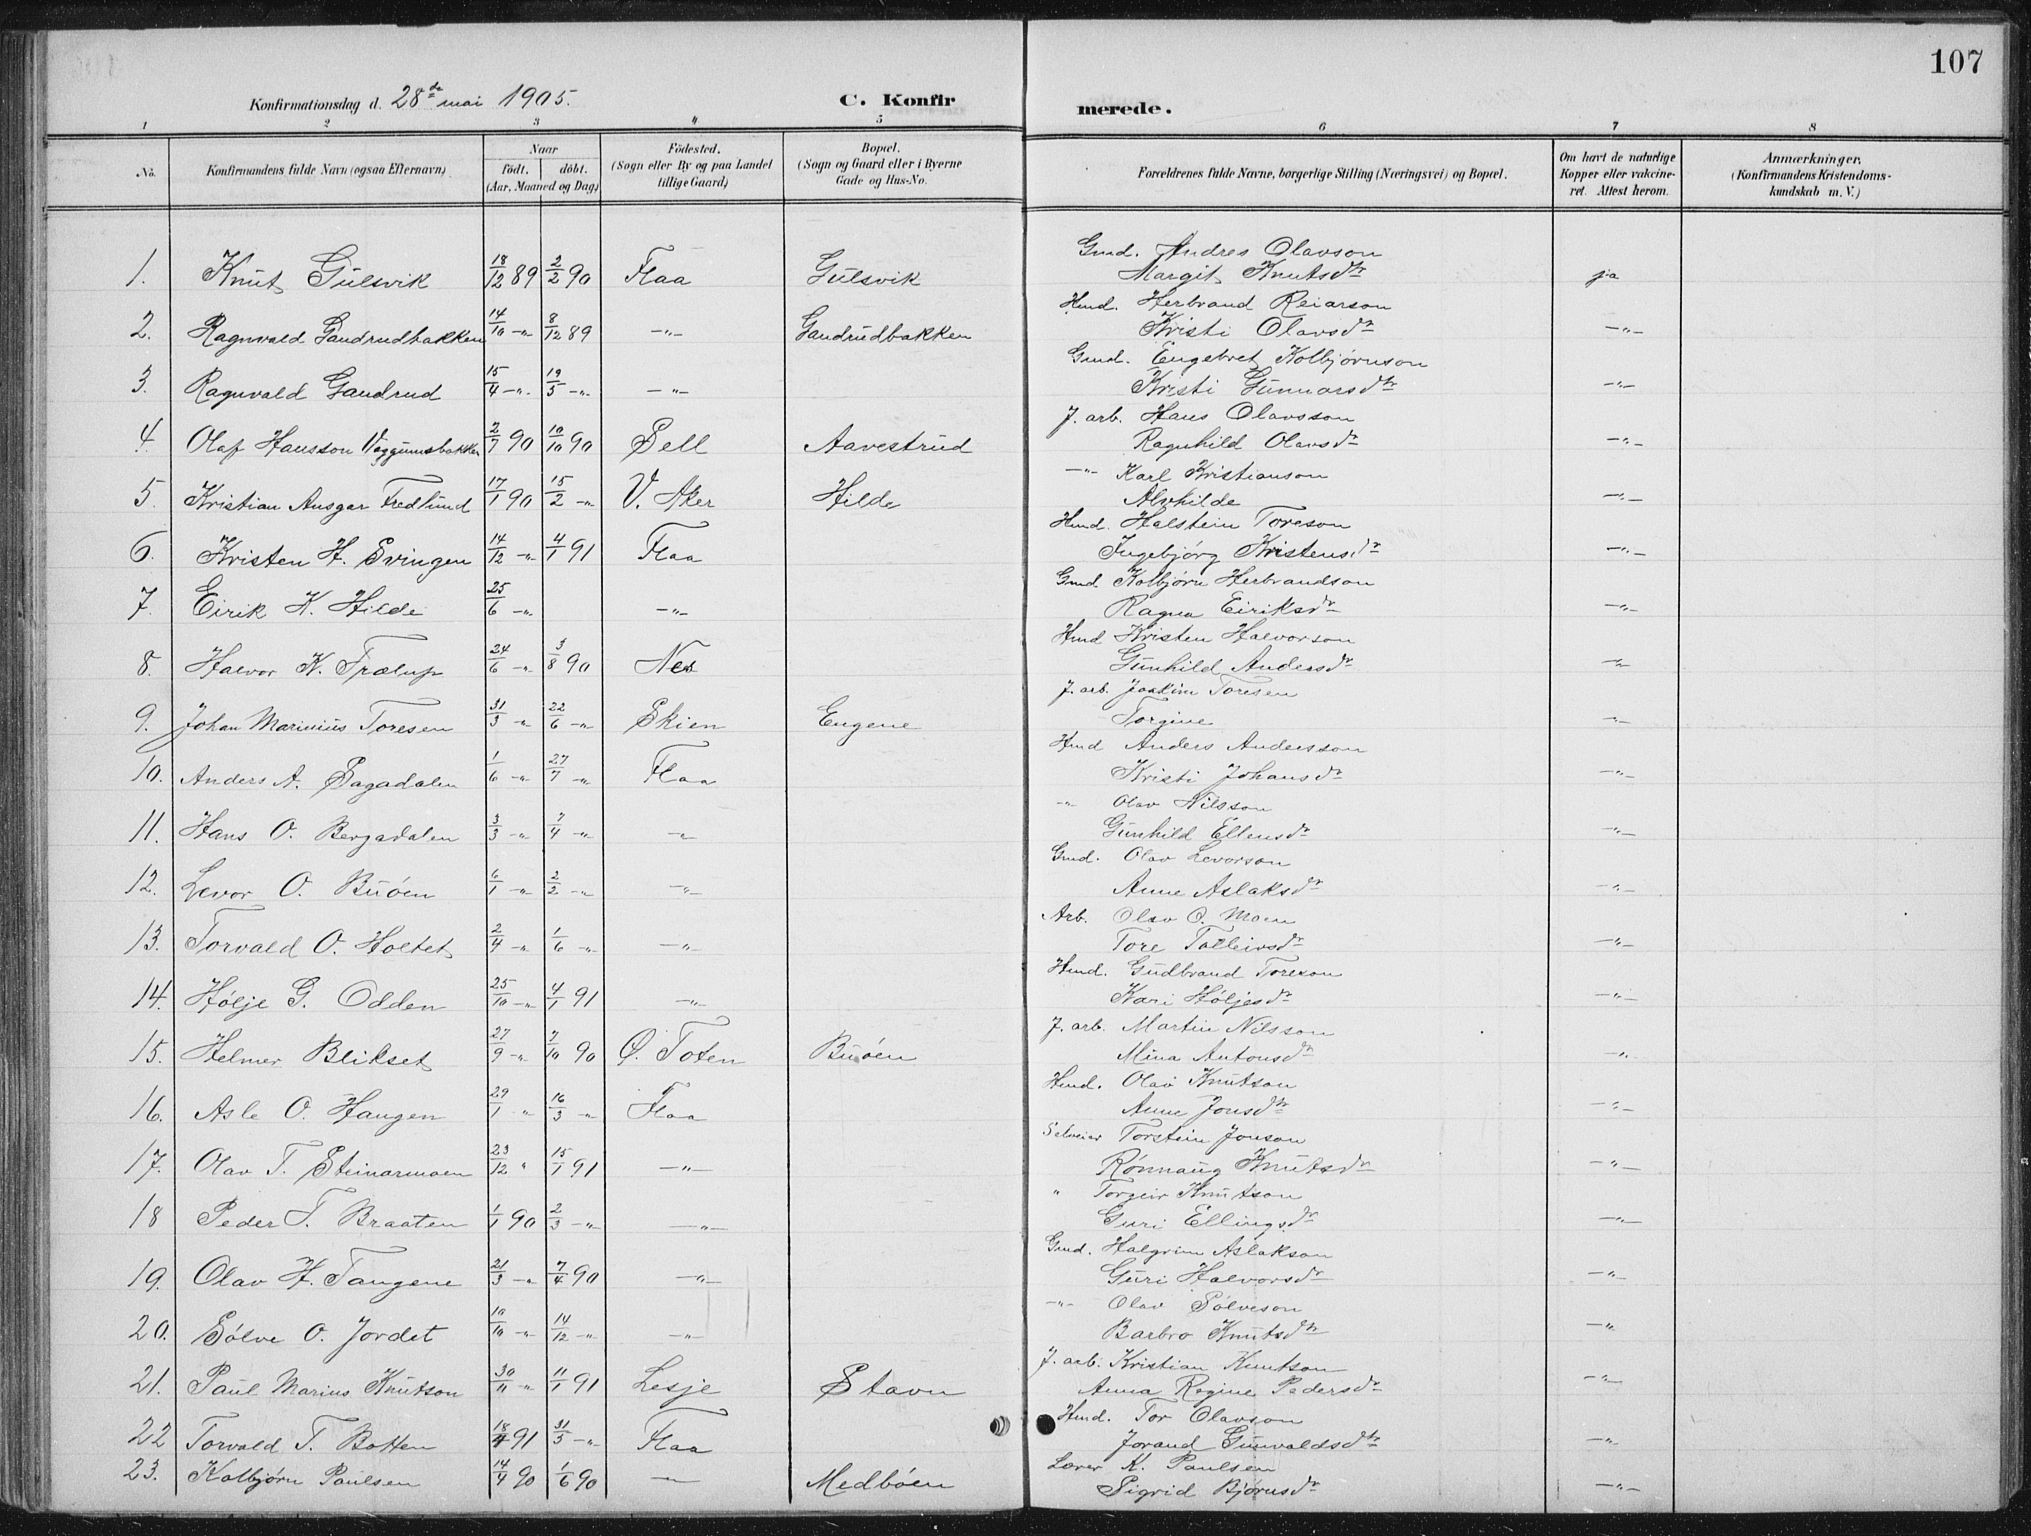 107
Konfirmationsdag d. 28de mai 1905. C. Konfir merede.
1 2 3 4 5 6 7 8
No. Konfirmandens fulde Navn (ogsaa Efternavn) Naar födt. döbt. (Aar, Maaned og Dag) Födested. (Sogn eller By og paa Landet tillige Gaard) Bopæl. (Sogn og Gaard eller i Byerne Gade og Hus-No. Forældrenes fulde Navne, borgerlige Stilling (Næringsvei) og Bopæl. Om havt de naturlige Kopper eller vakcineret. Attest herom. Anmærkninger. (Konfirmandens Kristendomskundskab m. V.)
Gmd. Andres Olavson
1. Knut Gulsvik 18/12 89 2/2 90 Flaa Gulsvik Margit Knutsdtr ja
Hmd. Herbrand Reiarson
2. Ragnvald Gandrudbakken 14/10 -"- 8/12 89 -"- Gandrudbakken Kristi Olavsdtr -"-
Gmd. Engebret Kolbjørnson
3. Ragnvald Gandrud 15/4 -"- 19/5 -"- -"- Kristi Gunnarsdtr -"-
J. arb. Hans Olavsson
4. Olaf Hansson Væggumsbakken 2/7 90 10/10 90 Sell Aavestrud Ragnhild Olavsdtr -"-
-"- Karl Kristianson
5. Kristian Ansgar Fredlund 17/1 90 15/2 -"- V. Aker Hilde Alvhilde -"-
Hmd. Halstein Toreson
6. Kristen H. Svingen 14/12 -"- 4/1 91 Flaa Ingebjørg Kristensdtr -"-
Gmd Kolbjørn Herbrandson
7. Eirik K. Hilde 25/6 -"- -"- Ragna Eiriksdtr -"-
Hmd Kristen Halvorson
8. Halvor K. Trælup 24/6 -"- 3/8 90 Nes Gunhild Andersdtr -"-
J. arb. Joakim Toresen
9. Johan Marinius Toresen 31/3 -"- 22/6 -"- Skien Engene Torgine -"-
Hmd Anders Andersson
10. Anders A. Sagadalen 1/6 -"- 27/7 -"- Flaa Kristi Johansdtr -"-
-"- Olav Nilsson
11. Hans O. Bergadalen 3/3 -"- 7/4 -"- -"- Gunhild Ellensdtr -"-
Gmd. Olav Levorson
12. Levor O. Buøen 6/1 -"- 2/2 -"- -"- Anne Aslaksdtr -"-
Arb. Olav O. Moen
13. Torvald O. Holtet 2/4 -"- 1/6 -"- -"- Tore Tolleivsdtr -"-
Hmd. Gudbrand Toreson
14. Hølje G. Odden 25/10 -"- 4/1 91 -"- Kari Høljesdtr -"-
J. arb. Martin Nilsson
15. Helmer Blikset 27/9 -"- 7/10 90 Ø. Toten Buøen Mina Antonsdtr -"-
Hmd. Olav Knutson
16. Asle O. Haugen 29/1 " 16/3 -"- Flaa Anne Jonsdtr -"-
Selveier Torstein Jonson
17. Olav T. Steinarmoen 23/12 " 15/1 91 -"- Rønnaug Knutsdtr -"-
" Torgeir Knutson
18 Peder T. Braaten 1/1 90 2/3 -"- -"- Guri Ellingsdtr -"-
Gmd. Halgrim Aslakson
19. Olav H. Tangene 21/3 -"- 7/4 90 -"- Guri Halvorsdtr -"-
-"- Olav Sølveson
20. Sølve O. Jordet 10/10 -"- 14/12 -"- -"- Barbro Knutsdtr -"-
J. arb. Kristian Knutson
21. Paul Marius Knutson 30/11 -"- 11/1 91 Lesje Stavn Anna Regine Pedersdtr -"-
Hmd. Tor Olavson
22 Torvald T. Botten 18/4 91 31/5 -"- Flaa Jorand Gunvaldsdtr -"-
Lærer K. Paulsen
23. Kolbjørn Paulsen 14/4 90 1/6 90 -"- Medbøen Sigrid Bjørnsdtr -"-